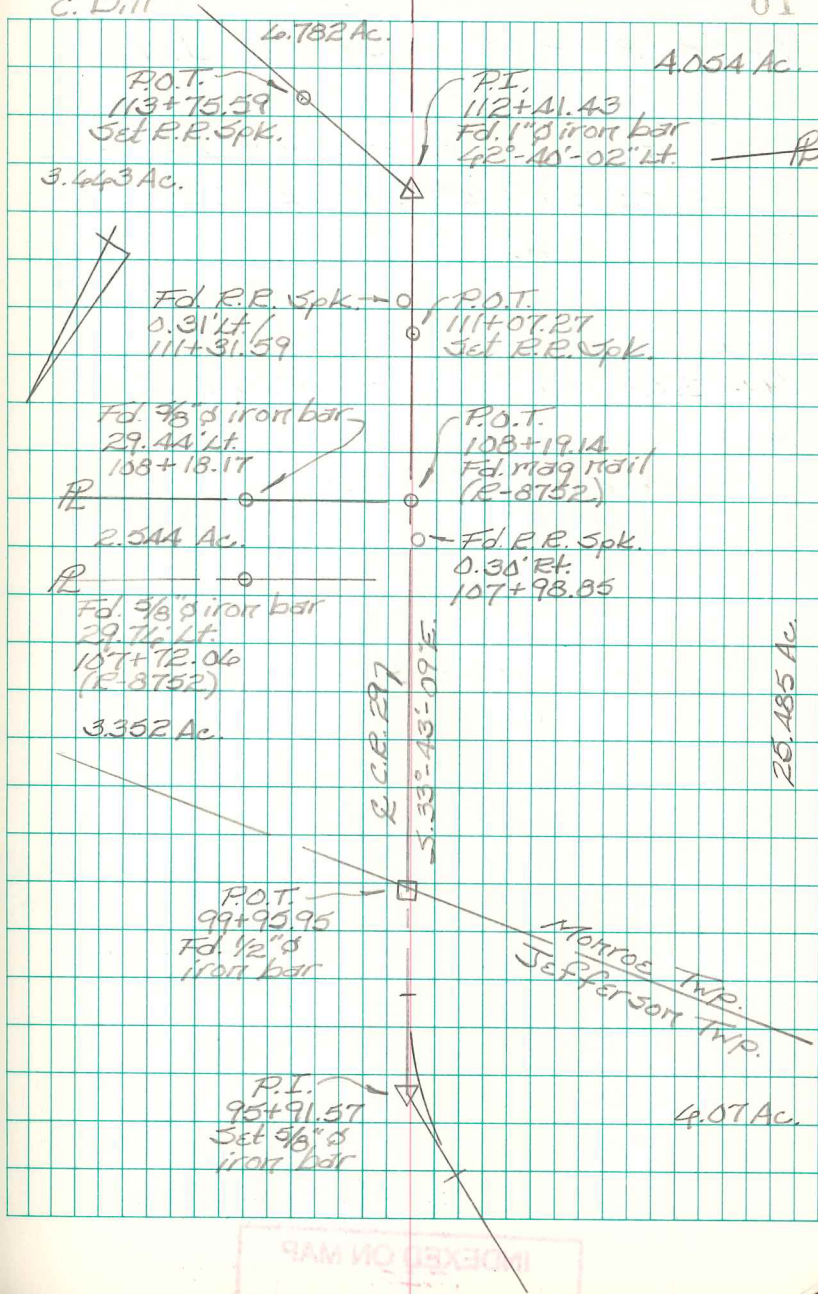 C. Dill
6.782 Ac.
4.054 Ac.
P.O.T.
113+75.59
Set R.R. Spk.
P.I.
112+41.43
Fd. 1"ø iron bar
42°-40'-02" Lt.
PL
3.443 Ac.
Fd. R.R. Spk.
0.31' Lt /
111+31.59
P.O.T.
111+07.27
Set R.R. Spk.
Fd. 5/8"ø iron bar
29.44' Lt.
108+18.17
P.O.T.
108+19.14
Fd. mag nail
(R-8752)
PL
2.544 Ac.
Fd. R.R. Spk.
0.30' Rt.
107+98.85
PL
Fd. 5/8"ø iron bar
29.76' Lt.
107+72.06
(R-8752)
3.352 Ac.
25.485 Ac.
℄ C.R. 297
S.33°-43'-09"E.
P.O.T.
99+95.95
Fd. 1/2"ø
iron bar
Monroe Twp.
Jefferson Twp.
P.I.
95+91.57
Set 5/8"ø
iron bar
4.07 Ac.
INDEXED ON MAP